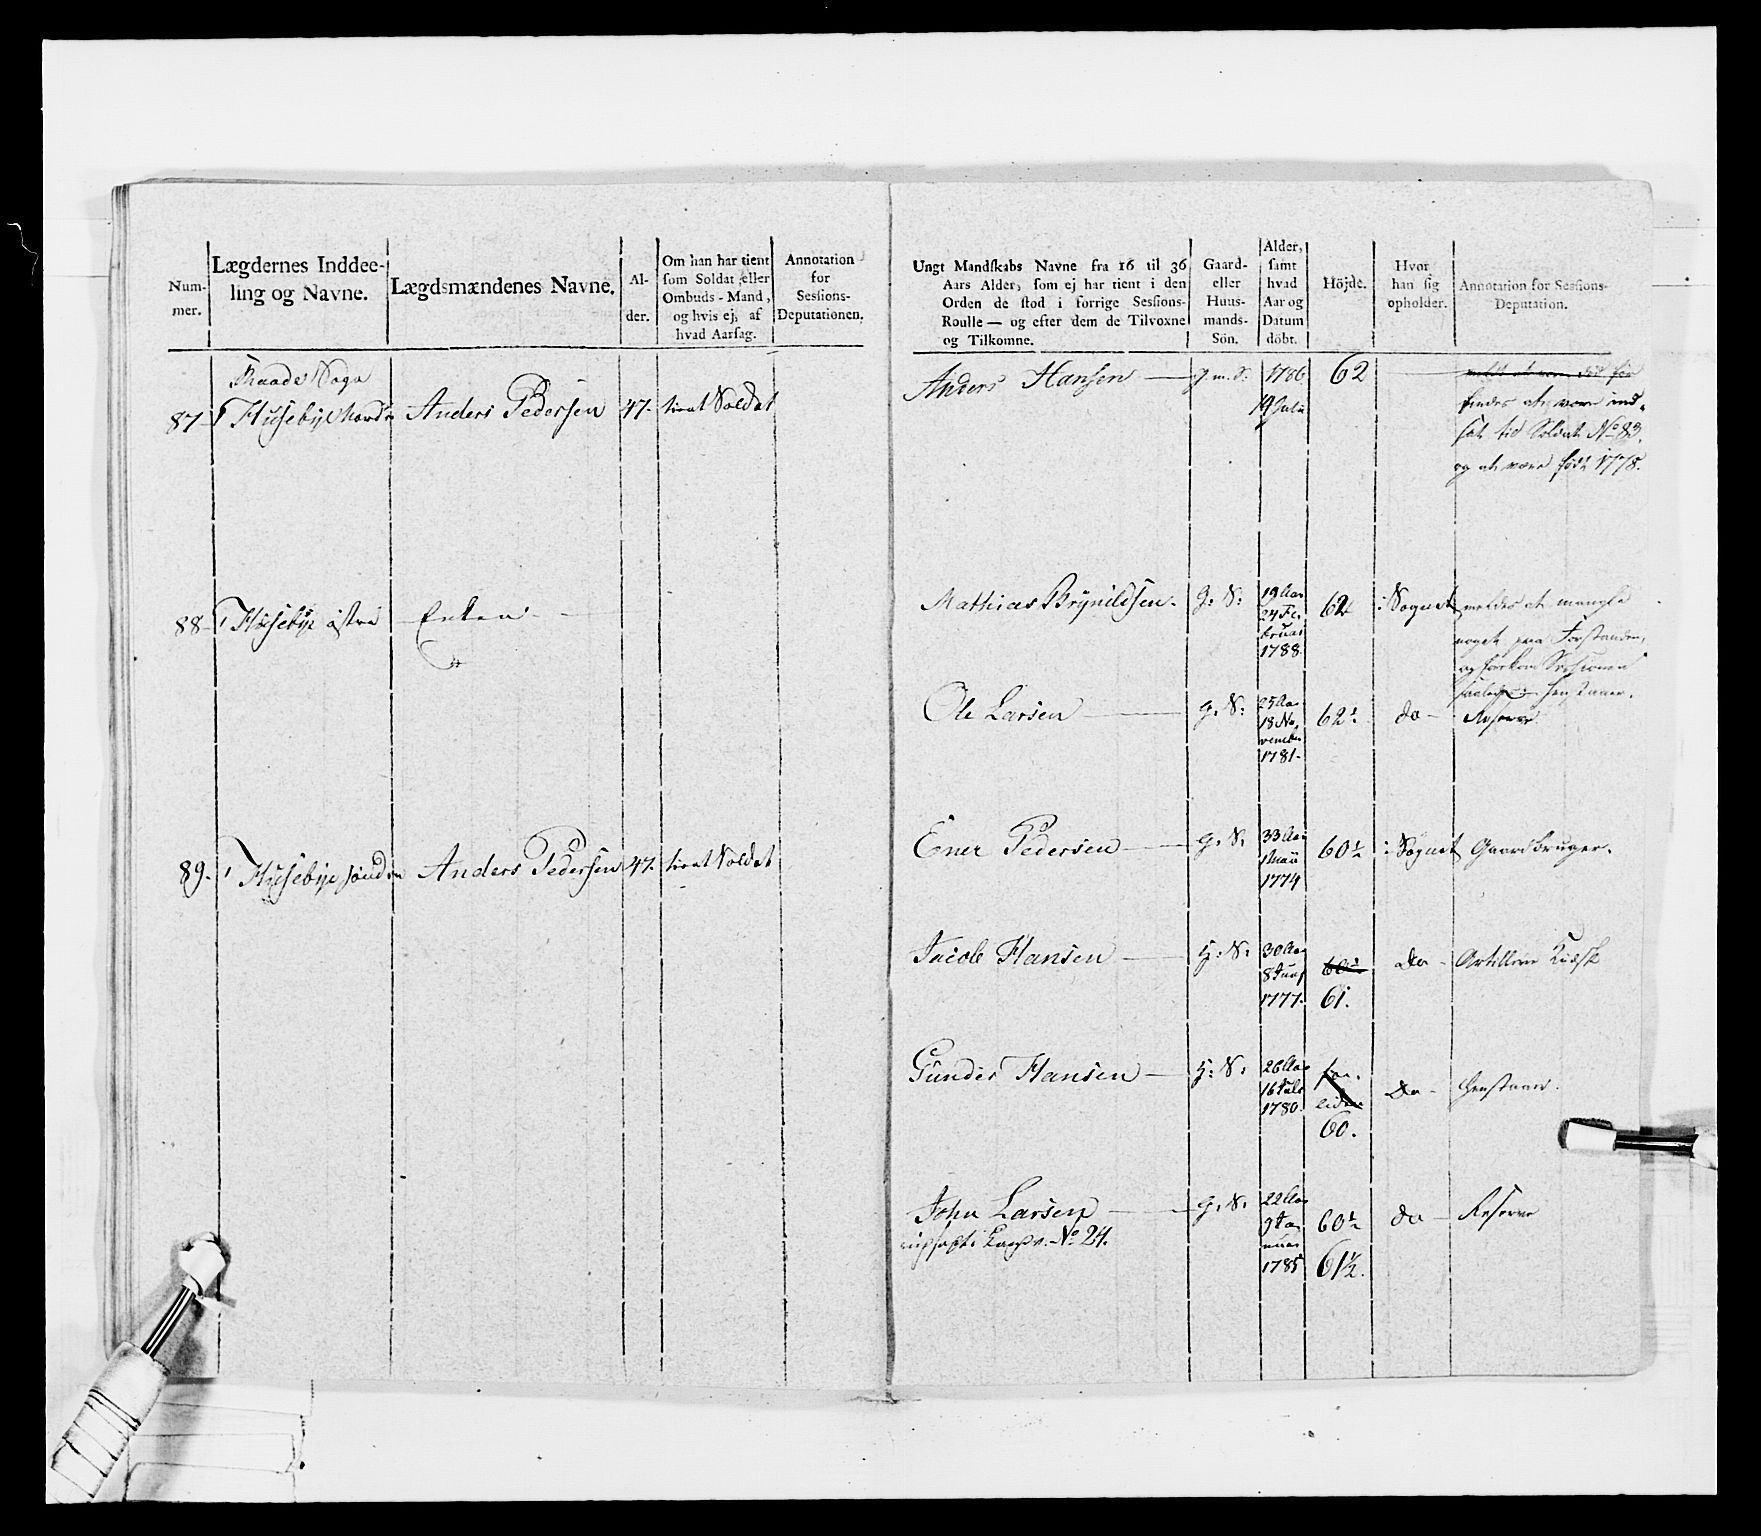 Num-
mer.
Lægdernes Inddee-
ling og Navne.
Lægdsmændenes Navne.
Al-
der.
Om han har tient
som Soldat eller
Ombuds-Mand,
og hvis ej, af
hvad Aarsag.
Annotation
for
Sessions-
Deputationen.
Raade Sogn
87 Husebÿe Nordre Anders Pedersen 47. tient Soldat
88 Husebÿe østre Enken
89. Husebÿe søndre Anders Pedersen 47. tient Soldat
Ungt Mandskabs Navne fra 16 til 36
Aars Alder, som ej har tient i den
Orden de stod i forrige Sessions-
Roulle — og efter dem de Tilvoxne
og Tilkomne.
Gaard-
eller
Huus-
mands-
Sön.
Alder,
samt
hvad
Aar og
Datum
döbt.
Höjde.
Hvor
han sig
opholder.
Annotation for Sessions-
Deputation.
Anders Hansen — g. m. S. 1786 62
19 Julii
findes at være ind-
sat til Soldat No 83.
og at være født 1778.
Mathias Brÿnildsen. G: S: 19 Aar
24 Fe-
bruar
1788.
62 i Sognet meldes at mangle
noget paa Forstanden,
og forekom Sessionen
saaledes Henstaaer.
Ole Larsen — G. S: 25 Aar
18 No-
vember
1781.
62½ do — Reserve
Ener Pedersen — G. S. 33 Aar
1 Maii
1774
60½ i Sognet Gaardbruger.
Jacob Hansen — H: S: 30 Aar
8 Junii
1777.
60½
61.
do — Artillerie Kudsk
Gunder Hansen — H: S: 26 Aar
16 Julii
1780.
for
liden
60.
do — Henstaaer.
John Larsen — G. S. 22 Aar
9 Ja-
nuar
1785
60½
61½.
do — Reserve
No 24.